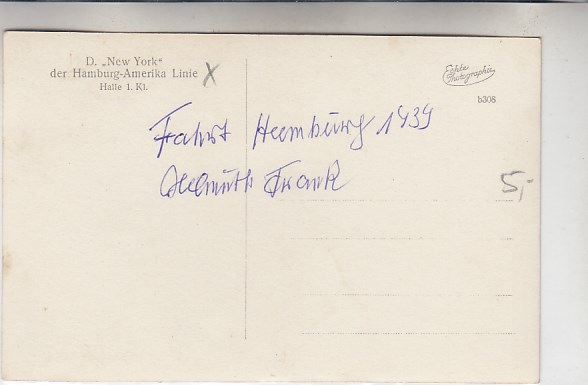 D. „New York“
der Hamburg-Amerika Linie X
Halle 1. Kl.
Echte
Photographie
b308
Fahrt Hamburg 1939
Helmuth Frank
5,-